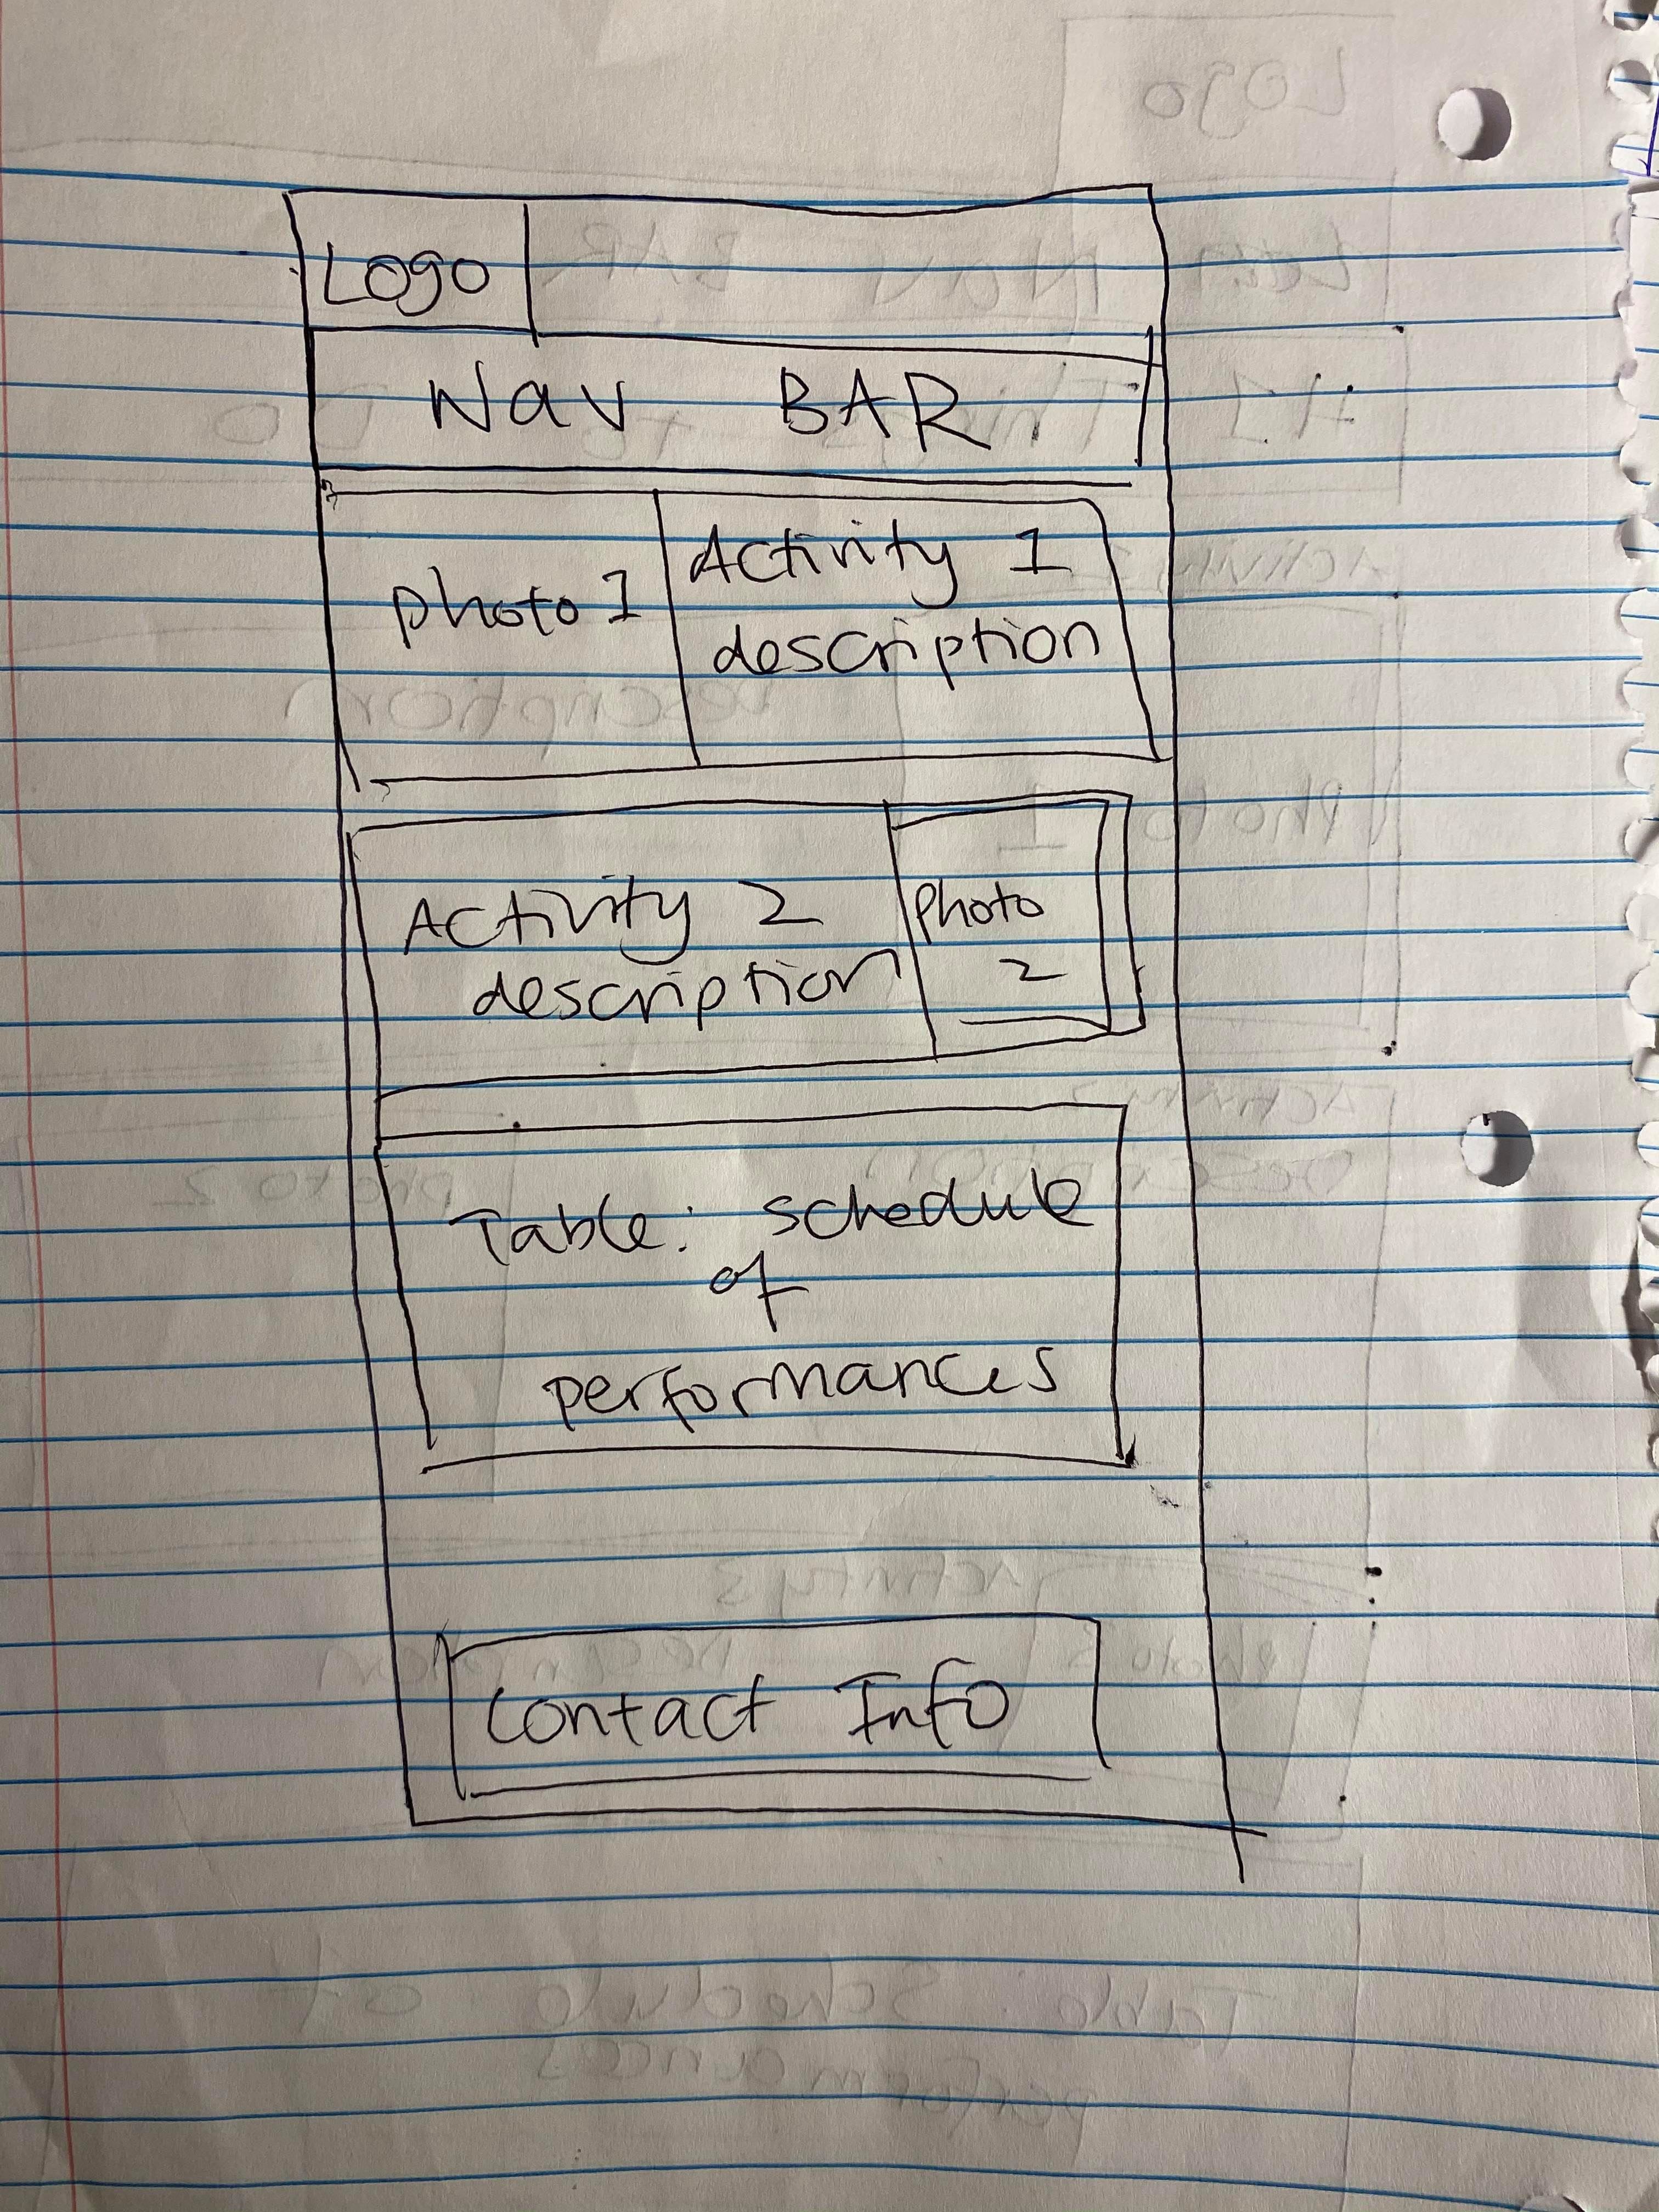 Logo
Nav BAR
photo 1
Activity 1
description
Activity 2
description
photo
2
Table: schedule
of
performances
Contact Info